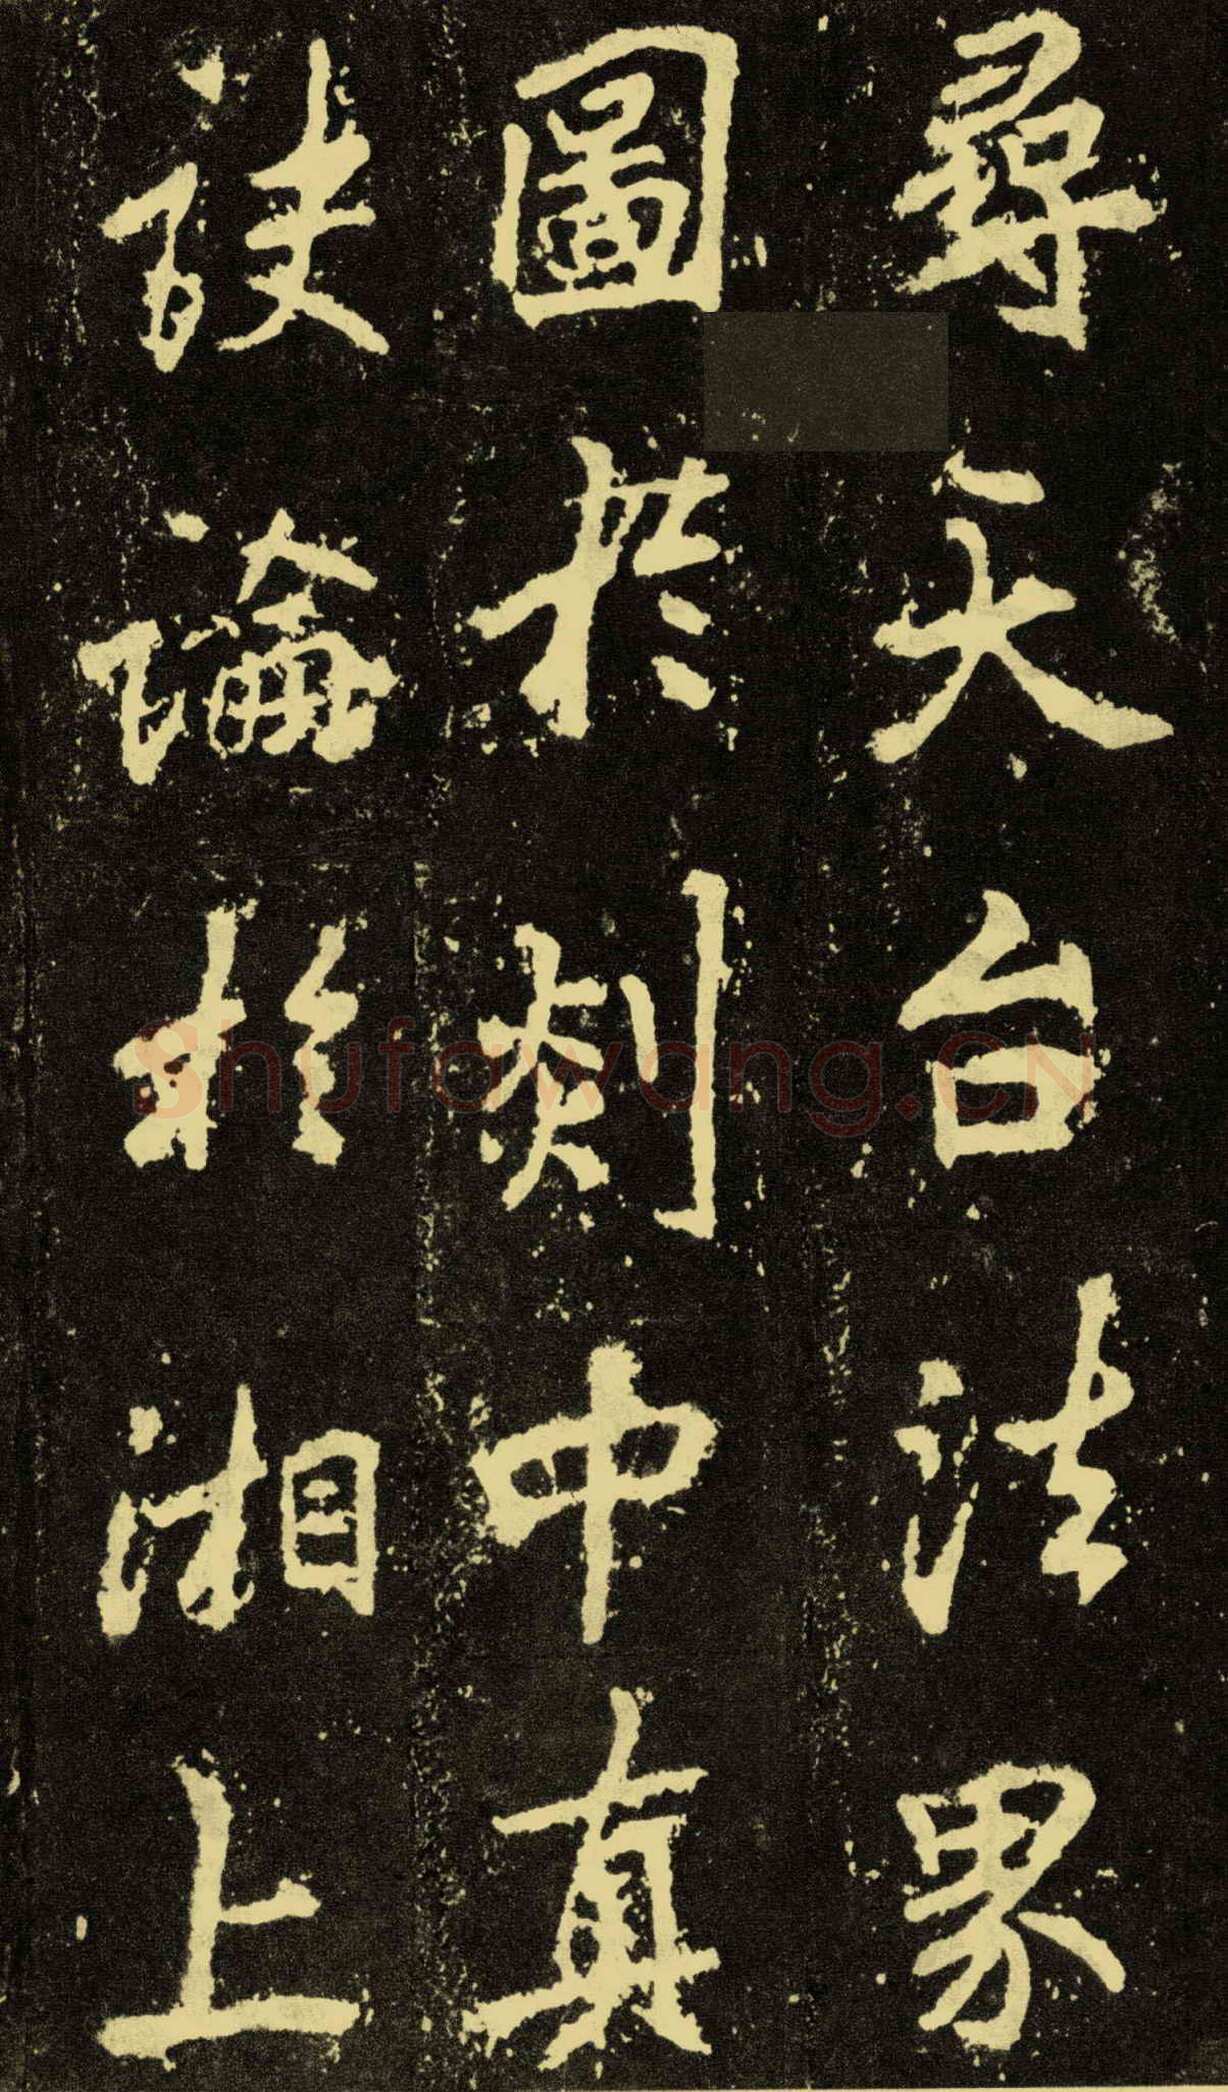 尋天台法界
圖於剡中真
訣論於湘上
Shufawang.CN